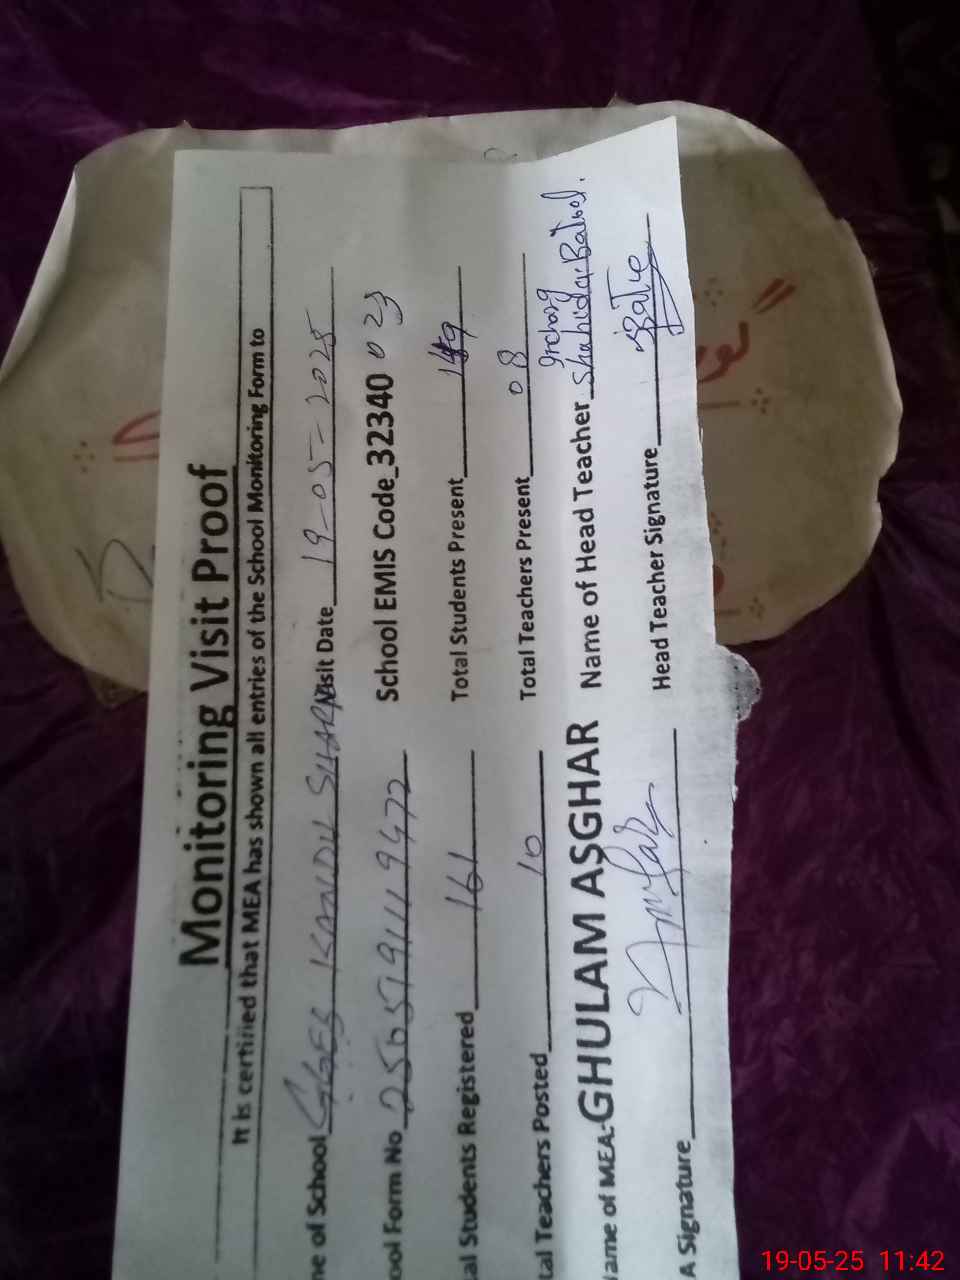 Monitoring Visit Proof
It is certified that MEA has shown all entries of the School Monitoring Form to
me of School GGES KANDU SHARN Visit Date 19-05-2025
ool Form No 2505191119472 School EMIS Code_32340 023
tal Students Registered 161 Total Students Present 149
tal Teachers Posted 10 Total Teachers Present 08
Incharg
ame of MEA:-GHULAM ASGHAR Name of Head Teacher Shahida Batool.
A Signature Head Teacher Signature
19-05-25 11:42